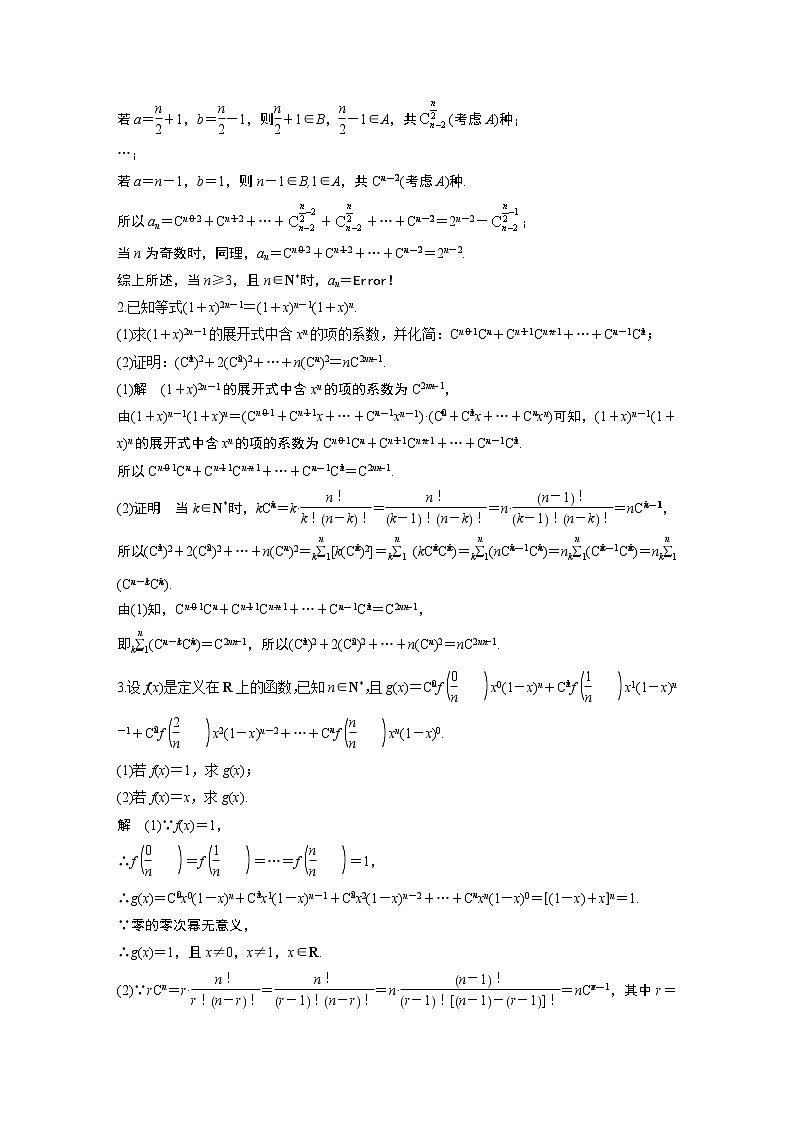 若 a＝n/2＋1，b＝n/2－1，则n/2＋1∈B，n/2－1∈A，共 C_{n－2}^{n/2} (考虑 A)种；
…；
若 a＝n－1，b＝1，则 n－1∈B,1∈A，共 C_{n－2}^{n－2}(考虑 A)种.
所以 aₙ＝C_{n－2}^{0}＋C_{n－2}^{1}＋…＋C_{n－2}^{n/2－2}＋C_{n－2}^{n/2}＋…＋C_{n－2}^{n－2}＝2^{n－2}－C_{n－2}^{n/2－1}；
当 n 为奇数时，同理，aₙ＝C_{n－2}^{0}＋C_{n－2}^{1}＋…＋C_{n－2}^{n－2}＝2^{n－2}.
综上所述，当 n≥3，且 n∈N*时，aₙ＝Error！
2.已知等式(1＋x)^{2n－1}＝(1＋x)^{n－1}(1＋x)^n.
(1)求(1＋x)^{2n－1}的展开式中含 x^n 的项的系数，并化简：C_{n－1}^{0}C_n^n＋C_{n－1}^{1}C_n^{n－1}＋…＋C_{n－1}^{n－1}C_n^1；
(2)证明：(C_n^1)^2＋2(C_n^2)^2＋…＋n(C_n^n)^2＝nC_{2n－1}^n.
(1)解　(1＋x)^{2n－1}的展开式中含 x^n 的项的系数为 C_{2n－1}^n，
由(1＋x)^{n－1}(1＋x)^n＝(C_{n－1}^{0}＋C_{n－1}^{1}x＋…＋C_{n－1}^{n－1}x^{n－1})·(C_n^0＋C_n^1x＋…＋C_n^nx^n)可知，(1＋x)^{n－1}(1＋
x)^n 的展开式中含 x^n 的项的系数为 C_{n－1}^{0}C_n^n＋C_{n－1}^{1}C_n^{n－1}＋…＋C_{n－1}^{n－1}C_n^1.
所以 C_{n－1}^{0}C_n^n＋C_{n－1}^{1}C_n^{n－1}＋…＋C_{n－1}^{n－1}C_n^1＝C_{2n－1}^n.
(2)证明　当 k∈N*时，kC_n^k＝k·n！/(k！(n－k)！)＝n！/((k－1)！(n－k)！)＝n·(n－1)！/((k－1)！(n－k)！)＝nC_{n－1}^{k－1}，
所以(C_n^1)^2＋2(C_n^2)^2＋…＋n(C_n^n)^2＝∑_{k＝1}^n[k(C_n^k)^2]＝∑_{k＝1}^n (kC_n^kC_n^k)＝∑_{k＝1}^n(nC_{n－1}^{k－1}C_n^k)＝n∑_{k＝1}^n(C_{n－1}^{k－1}C_n^k)＝n∑_{k＝1}^n
(C_{n－1}^{n－k}C_n^k).
由(1)知，C_{n－1}^{0}C_n^n＋C_{n－1}^{1}C_n^{n－1}＋…＋C_{n－1}^{n－1}C_n^1＝C_{2n－1}^n，
即∑_{k＝1}^n(C_{n－1}^{n－k}C_n^k)＝C_{2n－1}^n，所以(C_n^1)^2＋2(C_n^2)^2＋…＋n(C_n^n)^2＝nC_{2n－1}^n.
3.设 f(x)是定义在 R 上的函数，已知 n∈N*，且 g(x)＝C_n^0f(0/n)x^0(1－x)^n＋C_n^1f(1/n)x^1(1－x)^n
－1＋C_n^2f(2/n)x^2(1－x)^{n－2}＋…＋C_n^nf(n/n)x^n(1－x)^0.
(1)若 f(x)＝1，求 g(x)；
(2)若 f(x)＝x，求 g(x).
解　(1)∵f(x)＝1，
∴f(0/n)＝f(1/n)＝…＝f(n/n)＝1，
∴g(x)＝C_n^0x^0(1－x)^n＋C_n^1x^1(1－x)^{n－1}＋C_n^2x^2(1－x)^{n－2}＋…＋C_n^nx^n(1－x)^0＝[(1－x)＋x]^n＝1.
∵零的零次幂无意义，
∴g(x)＝1，且 x≠0，x≠1，x∈R.
(2)∵rC_n^r＝r·n！/(r！(n－r)！)＝n！/((r－1)！(n－r)！)＝n·(n－1)！/((r－1)！[(n－1)－(r－1)]！)＝nC_{n－1}^{r－1}，其中 r＝